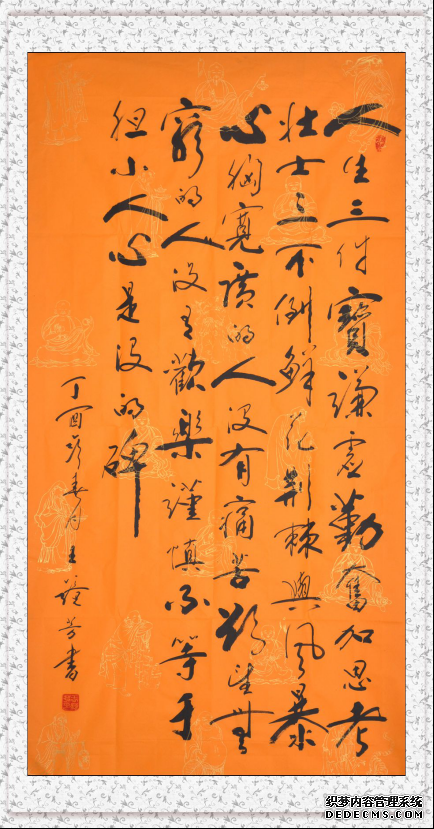 人生三件寶謙虛勤奮加思考
壯士三不倒鮮花荆棘與風暴
心胸寬廣的人没有痛苦欲望無
窮的人没有歡樂謹慎不等于
胆小人心是没的碑
丁酉春月王芳書
织梦内容管理系统
DEDECMS.COM